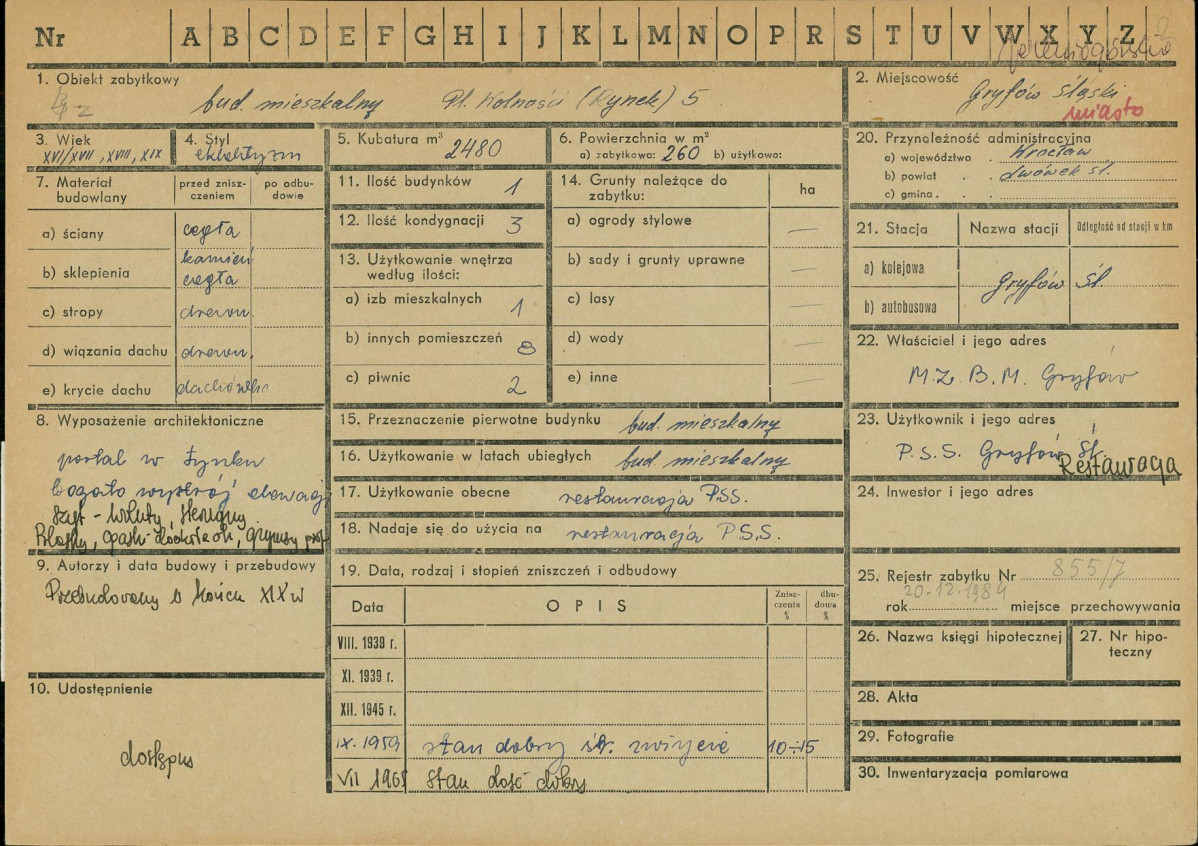 Nr A B C D E F G H I J K L M N O P R S T U V W X Y Z
1. Obiekt zabytkowy
bud. mieszkalny Pl. Wolności (Rynek) 5
2. Miejscowość
Gryfów Śląski
miasto
3. Wiek
XVI/XVII, XVIII, XIX
4. Styl
eklektyzm
5. Kubatura m³ 2480
6. Powierzchnia w m²
a) zabytkowa: 260 b) użytkowa:
7. Materiał budowlany
przed zniszczeniem
po odbudowie
a) ściany cegła
b) sklepienia kamień cegła
c) stropy drewn.
d) wiązania dachu drewn.
e) krycie dachu dachówka
8. Wyposażenie architektoniczne
portal w tynku
bogato wystrój elewacji
szyt - woluty,
9. Autorzy i data budowy i przebudowy
Przebudowany w końcu XIX w
10. Udostępnienie
dostępny
11. Ilość budynków 1
12. Ilość kondygnacji 3
13. Użytkowanie wnętrza według ilości:
a) izb mieszkalnych 1
b) innych pomieszczeń 8
c) piwnic 2
14. Grunty należące do zabytku: ha
a) ogrody stylowe —
b) sady i grunty uprawne —
c) lasy —
d) wody —
e) inne —
15. Przeznaczenie pierwotne budynku bud. mieszkalny
16. Użytkowanie w latach ubiegłych bud. mieszkalny
17. Użytkowanie obecne restauracja PSS.
18. Nadaje się do użycia na restauracja P.S.S.
19. Data, rodzaj i stopień zniszczeń i odbudowy
Data OPIS Zniszczenia % dbudowa %
VIII. 1939 r.
XI. 1939 r.
XII. 1945 r.
IX. 1959 stan dobry śr. zużycie 10÷15
VII 1965 stan dość dobry
20. Przynależność administracyjna
a) województwo Wrocław
b) powiat lwówek śl.
c) gmina
21. Stacja Nazwa stacji Odległość od stacji w km
a) kolejowa
Gryfów Śl.
b) autobusowa
22. Właściciel i jego adres
M.Z.B.M. Gryfów
23. Użytkownik i jego adres
P.S.S. Gryfów Śl.
Restauracja
24. Inwestor i jego adres
25. Rejestr zabytku Nr 855/7
20.12.1984
rok miejsce przechowywania
26. Nazwa księgi hipotecznej
27. Nr hipoteczny
28. Akta
29. Fotografie
30. Inwentaryzacja pomiarowa